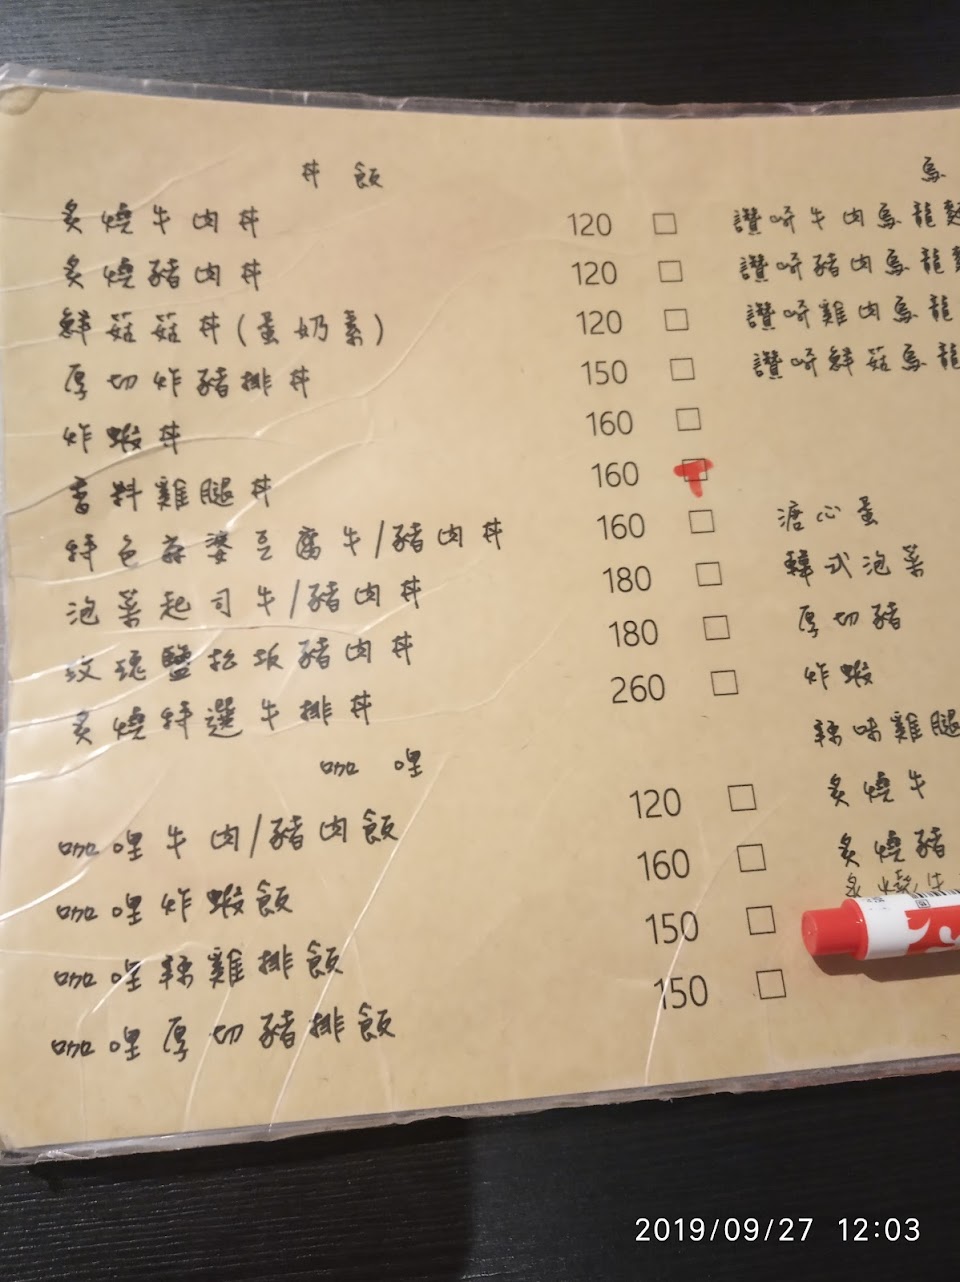 丼 飯
炙燒牛肉丼 120 □
炙燒豬肉丼 120 □
鮮菇菇丼(蛋奶素) 120 □
厚切炸豬排丼 150 □
炸蝦丼 160 □
香料雞腿丼 160 □
特色麻婆豆腐牛/豬肉丼 160 □
泡菜起司牛/豬肉丼 180 □
玫瑰鹽松坂豬肉丼 180 □
炙燒特選牛排丼 260 □
咖 哩
咖哩牛肉/豬肉飯 120 □
咖哩炸蝦飯 160 □
咖哩辣雞排飯 150 □
咖哩厚切豬排飯 150 □
烏
讚崎牛肉烏龍麵
讚崎豬肉烏龍
讚崎雞肉烏龍
讚崎鮮菇烏龍
溏心蛋
韓式泡菜
厚切豬
炸蝦
辣味雞腿
炙燒牛
炙燒豬
炙燒牛
2019/09/27 12:03